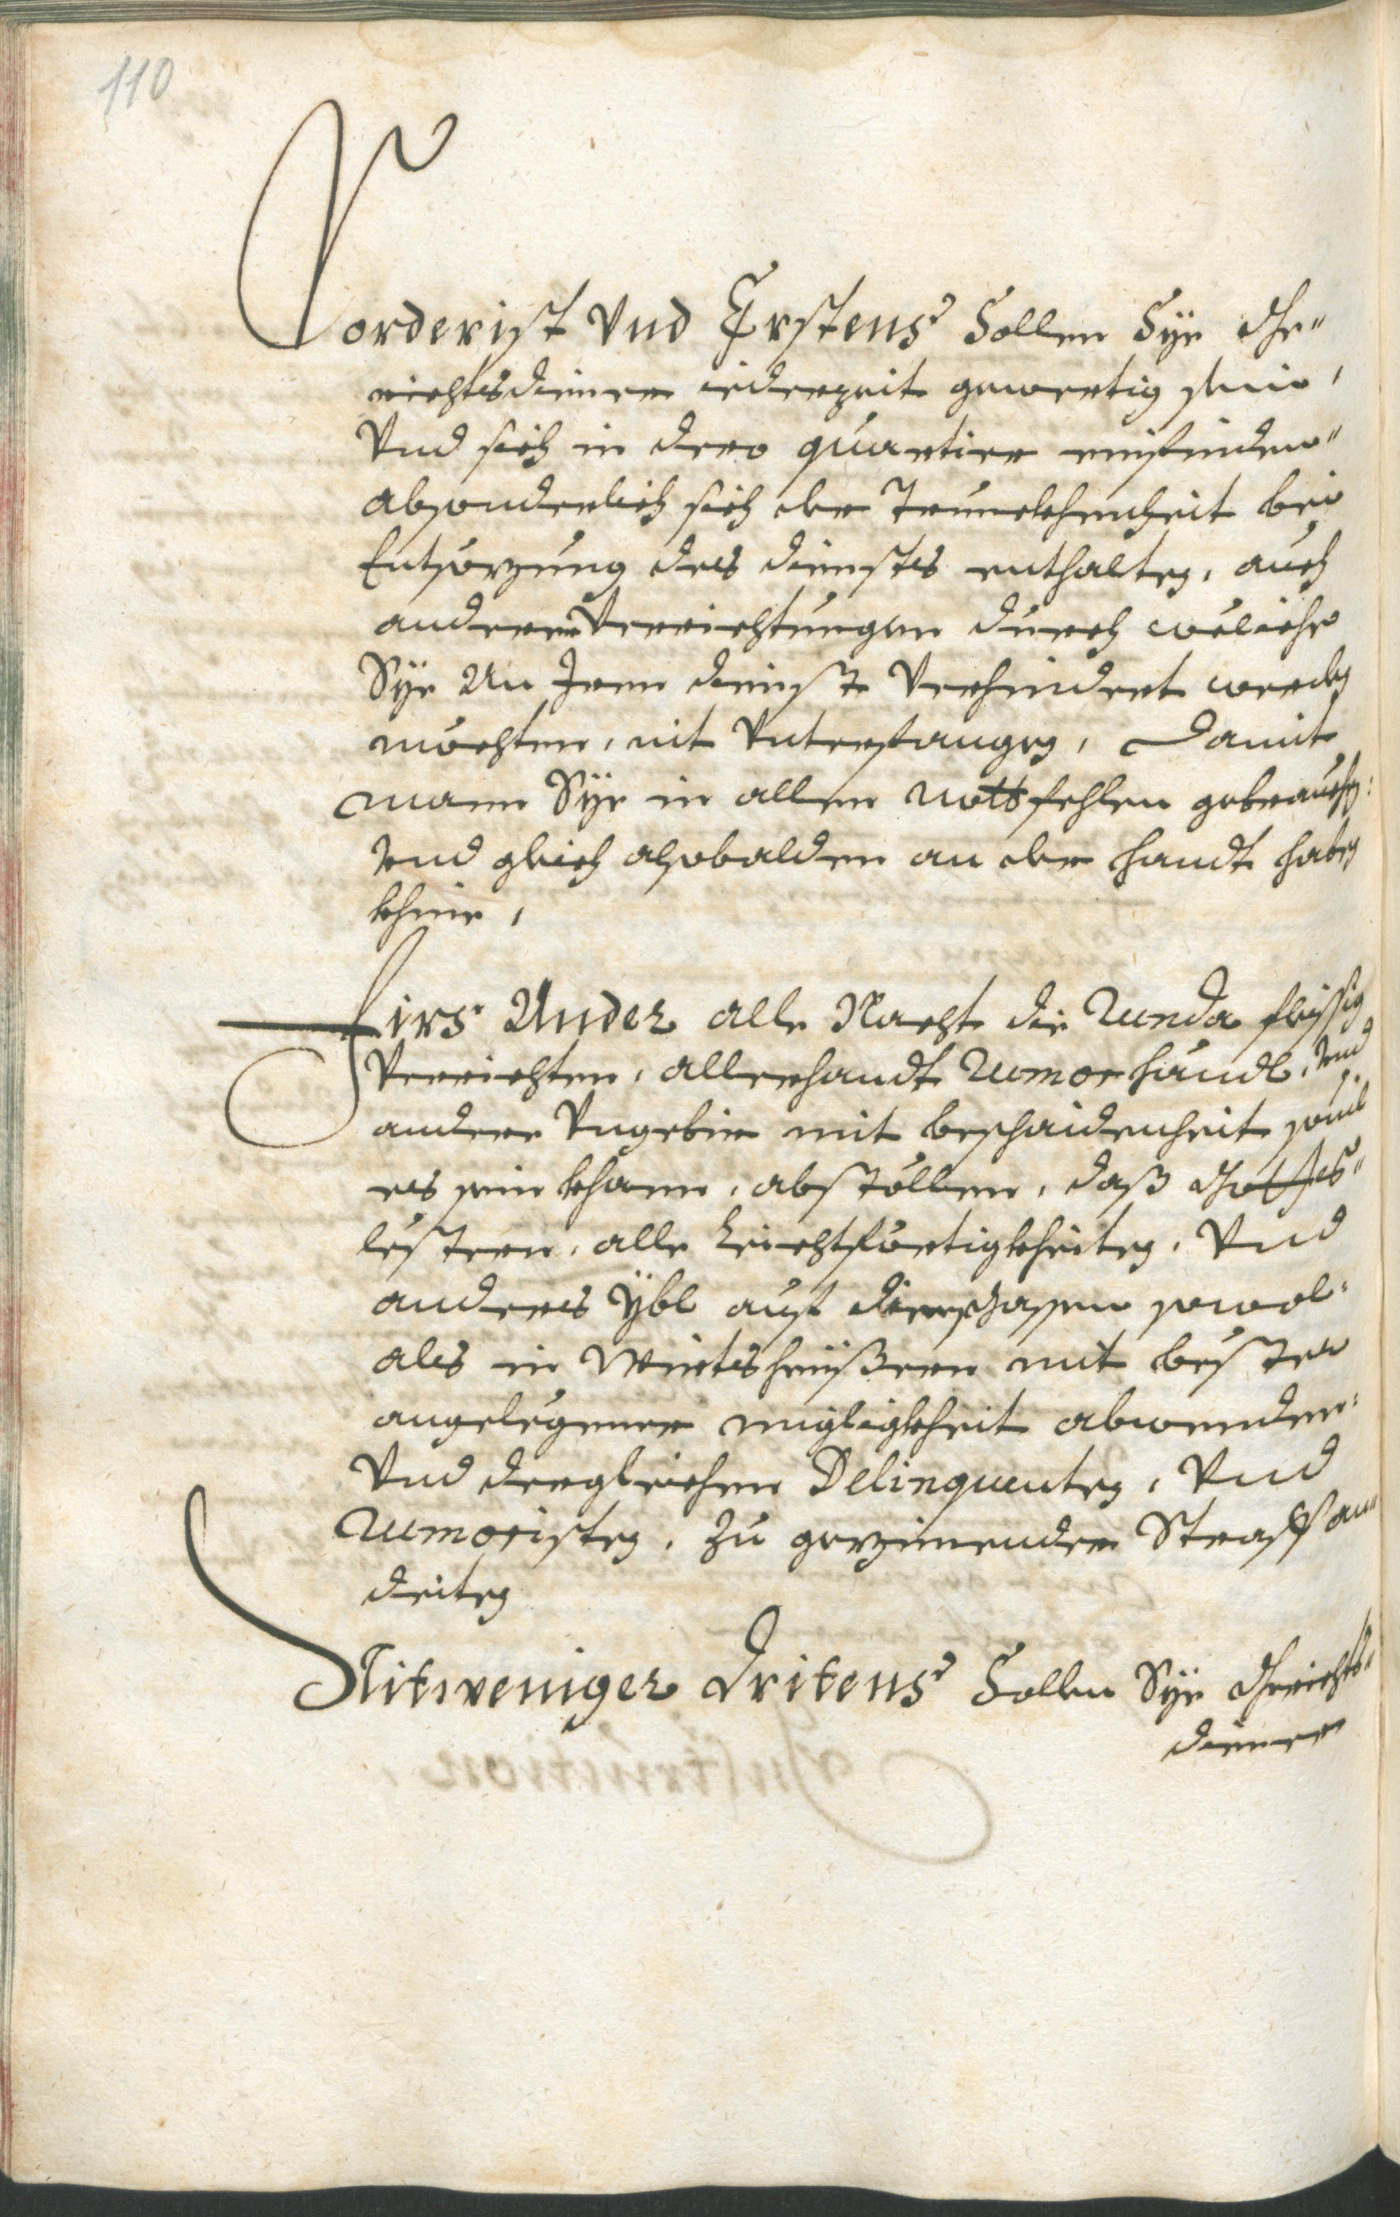 110
Vorderist Vnd Erstens Sollen Sÿe Ge"
richtsdiener iederzeit gewertig sein,
Vnd sich in dero quartier einfinden"
absonderlich sich der Trunckhenheit bei
Entsezung des diensts enthalten, auch
anderen Verrichtungen durch weliche
Sÿe An Iren dienst Verhindert werden
mechten, nit Vnterfangen, Damit
mann Sÿe in allen nottsfehlen gebrauchen:
Vnd gleich alsobalden an der handt haben
khine,
Firs Ander alle Nacht die Runda fleissig
Verrichten, allerhandt Rumorhändl, Vnd
andere Vngebir mit beschaidenheit souil
es sein khann, abstöllen, daß Gottes"
lestern, alle Leichtfertigkheiten, Vnd
anderes ÿbl auf der gassen sowol:
als in Wirtsheüßern mit bester
angelegener migligkheit abwenden:
Vnd dergleichen Delinquenten, Vnd
Rumoristen, Zu gezimender Straff an"
deiten
Nitweniger Dritens Sollen Sÿe Gerichts"
diener